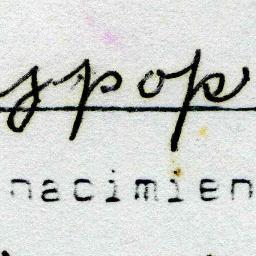 spop
nacimien